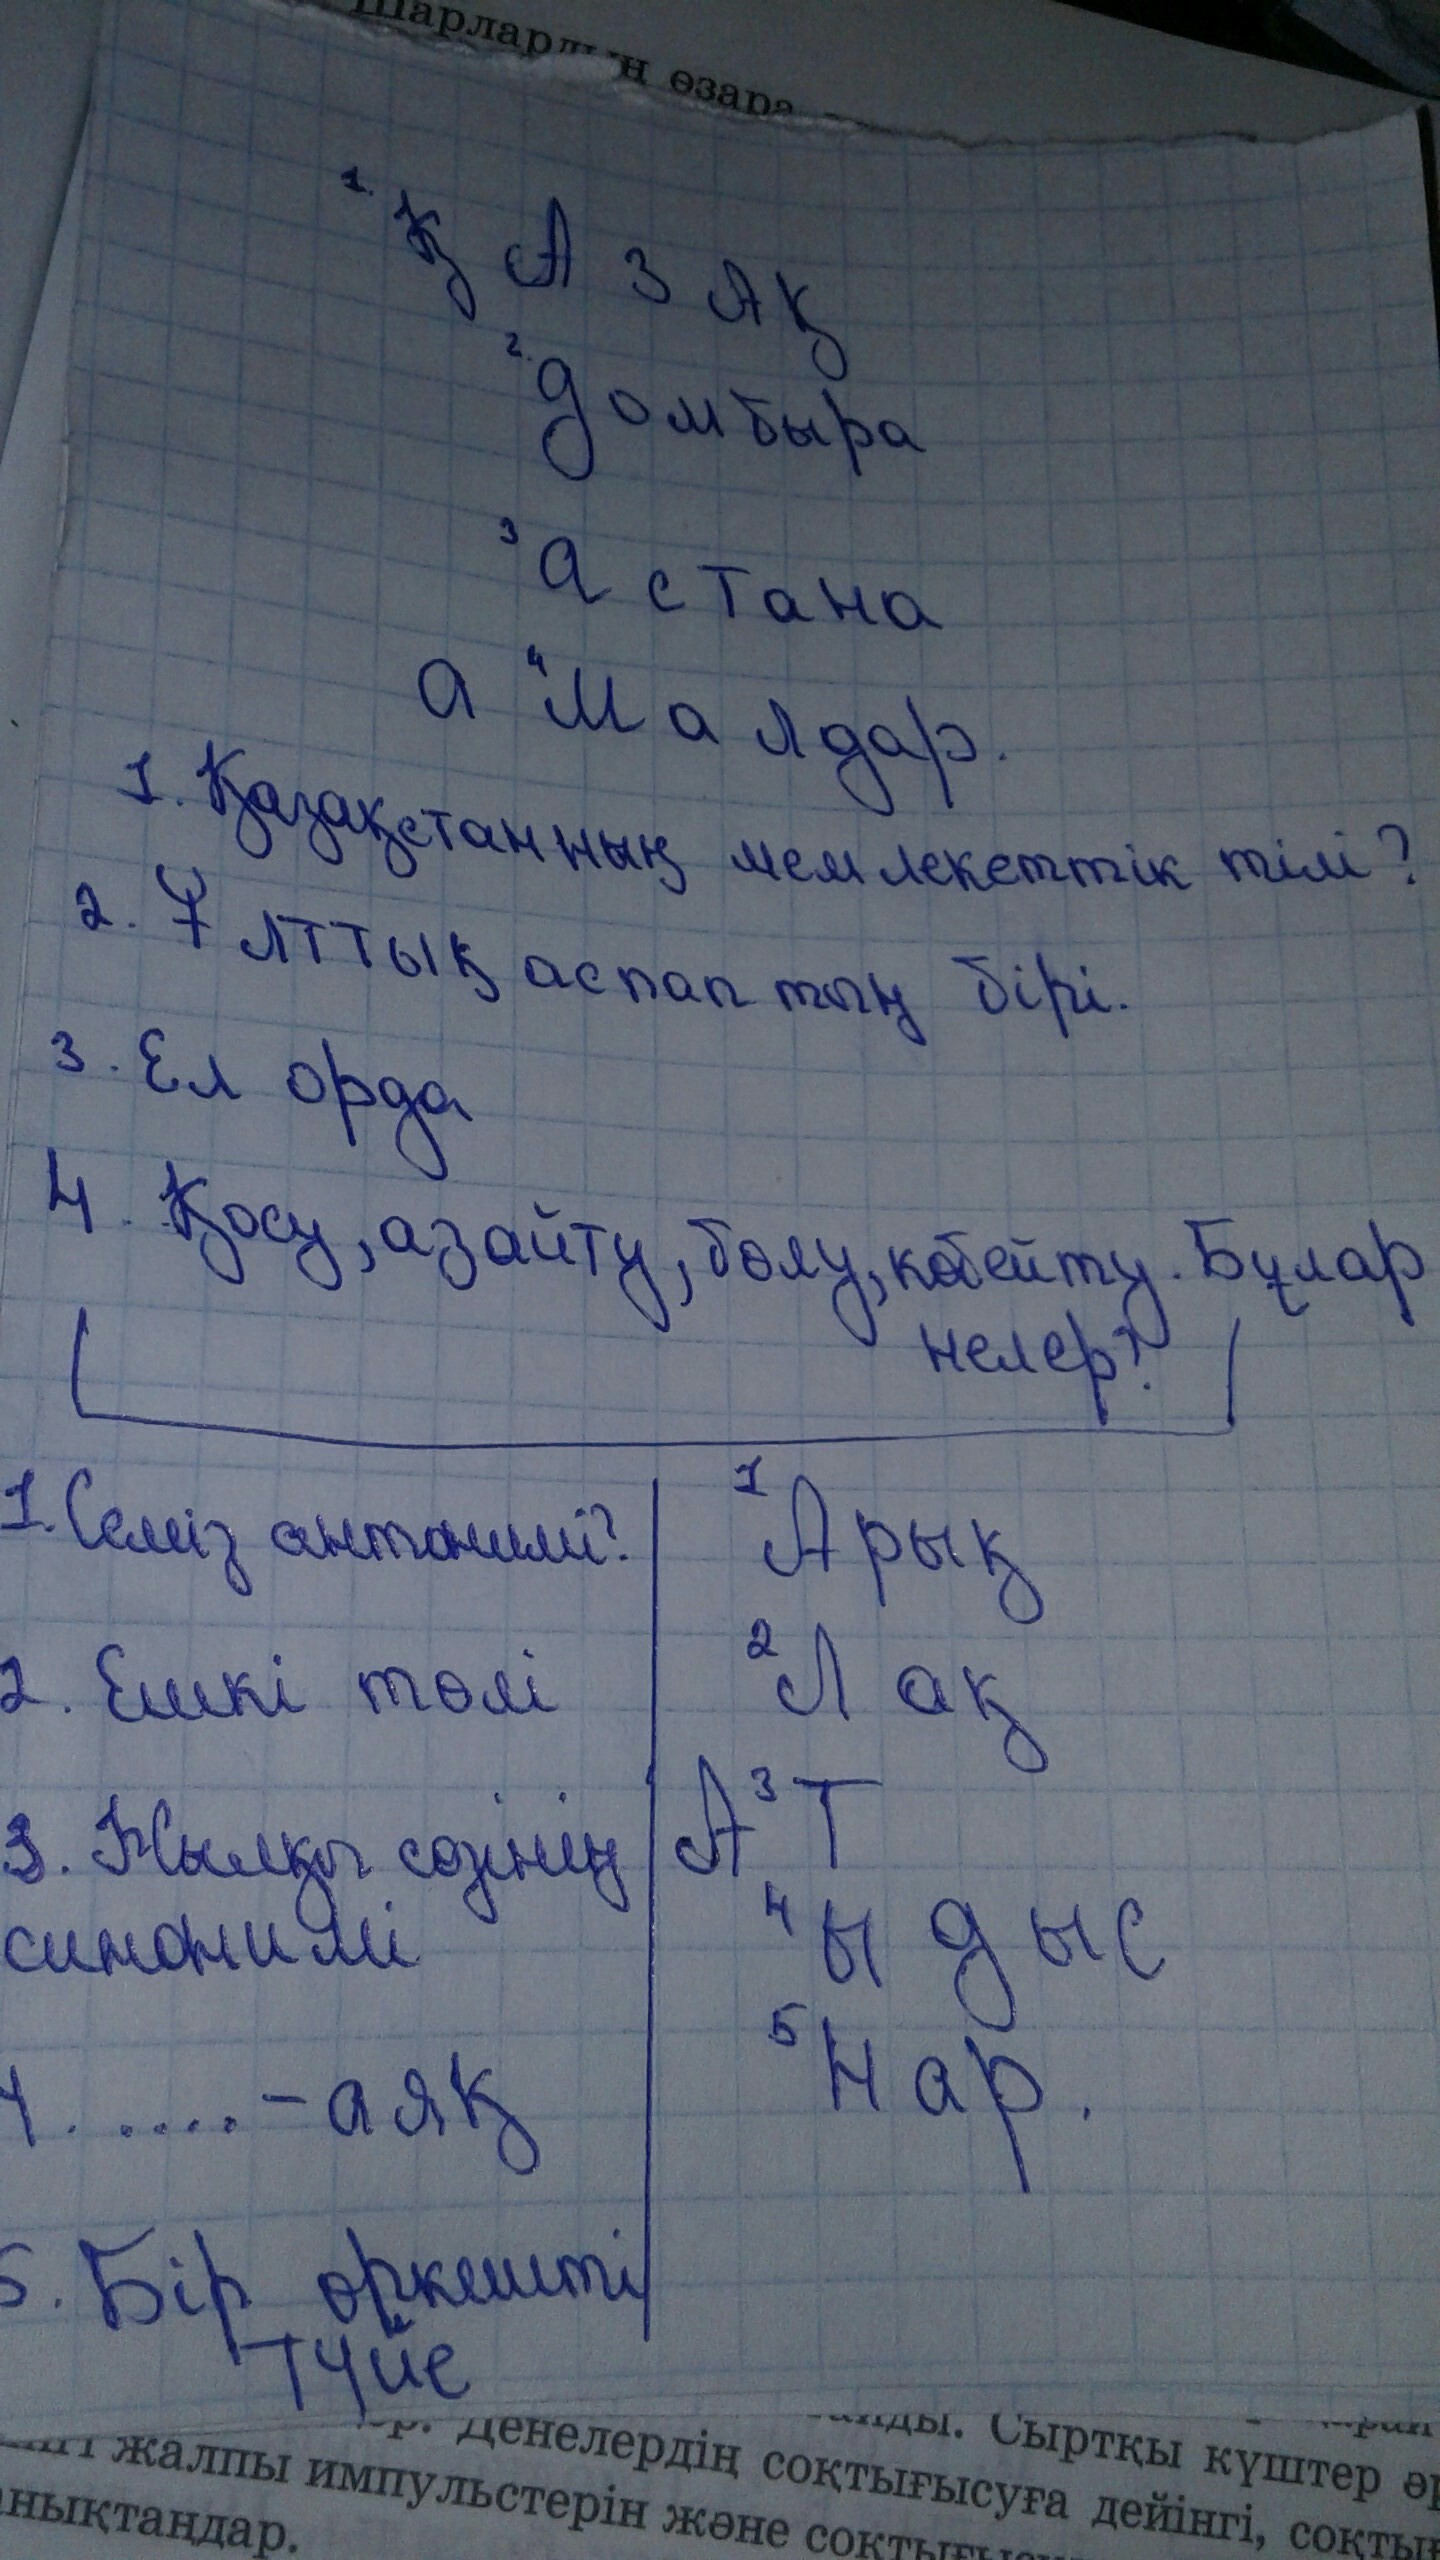 Шарлардың өзара
1. Қ А З Ақ
2. домбыра
3 астана
а 4 малдар.
1. Қазақстанның мемлекеттік тілі?
2. Ұлттық аспаптың бірі.
3. Ел орда
4. Қосу, азайту, бөлу, көбейту. Бұлар
нелер?
1. Семіз антонимі?
1 Арық
2. Ешкі төлі
2 Лақ
3. Жылқы сөзінің
синонимі
А 3 Т
4. ..... - аяқ
4 ы д ы с
5. Бір өркешті
түйе
5 Нар.
Денелердің соқтығысуға дейінгі, соқтығ
Сыртқы күштер әр
жалпы импульстерін және
анықтаңдар.